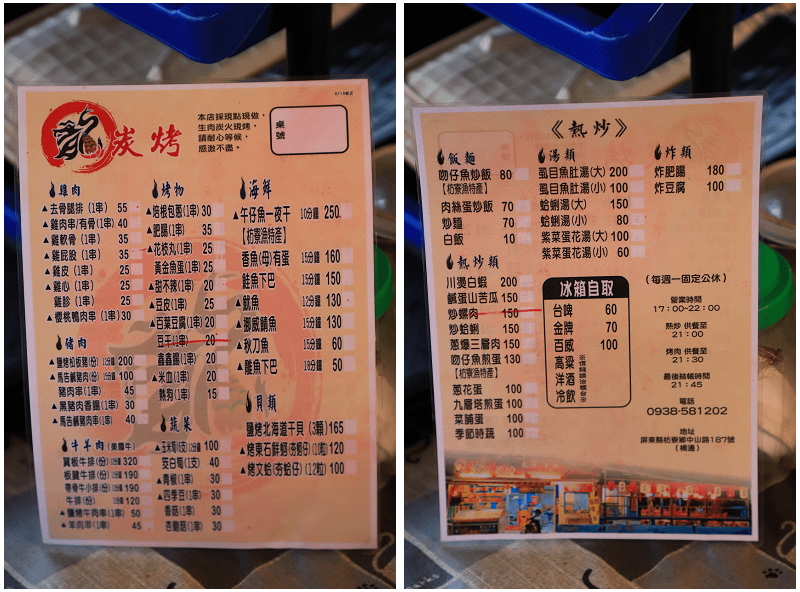 龍炭烤
本店採現點現做，
生肉炭火現烤，
請耐心等候，
感激不盡。
桌號
雞肉
▲去骨腿排 (1串) 55
▲雞肉串/有骨(1串) 40
▲雞軟骨 (1串) 35
▲雞屁股 (1串) 35
▲雞皮 (1串) 25
▲雞心 (1串) 25
雞胗 (1串) 25
▲櫻桃鴨肉串(1串) 30
豬肉
▲鹽烤松板豬(份) 12分鐘 200
▲馬告鹹豬肉(份) 15分鐘 100
豬肉串(1串) 45
▲黑豬肉香腸(1串) 30
▲馬告鹹豬肉串(1串) 40
牛羊肉 (美國牛)
翼板牛排(份) 320
板腱牛排(份) 190
帶骨牛小排(份) 190
牛排(份) 120
▲鹽烤牛肉串(1串) 50
▲羊肉串(1串) 45
烤物
▲培根包蔥(1串) 30
▲肥腸(1串) 35
▲花枝丸(1串) 25
▲黃金魚蛋(1串) 25
▲甜不辣(1串) 20
▲豆皮(1串) 25
▲百菜豆腐(1串) 20
豆干(1串) 20
鑫鑫腸(1串) 20
▲米血(1串) 20
熱狗(1串) 15
蔬菜
▲玉米筍(5支) 12分鐘 100
茭白筍(1支) 40
▲青椒(1串) 30
▲四季豆(1串) 30
香菇(1串) 30
杏鮑菇(1串) 30
海鮮
▲午仔魚一夜干 10分鐘 250
【枋寮漁特產】
香魚(母)有蛋 15分鐘 160
▲鮭魚下巴 15分鐘 150
▲魷魚 12分鐘 130
▲挪威鯖魚 15分鐘 130
▲秋刀魚 15分鐘 60
▲鰹魚下巴 18分鐘 50
貝類
鹽烤北海道干貝 (3顆) 165
▲烤東石鮮蚵(夯蚵仔)(10粒) 120
▲烤文蛤(夯蛤仔)(12粒) 100
《熱炒》
飯麵
吻仔魚炒飯 80
【枋寮漁特產】
肉絲蛋炒飯 70
炒麵 70
白飯 10
湯類
虱目魚肚湯(大) 200
虱目魚肚湯(小) 100
蛤蜊湯(大) 150
蛤蜊湯(小) 80
紫菜蛋花湯(大) 100
紫菜蛋花湯(小) 60
炸類
炸肥腸 180
炸豆腐 100
熱炒類
川燙白蝦 200
鹹蛋山苦瓜 150
炒螺肉 150
炒蛤蜊 150
蔥爆三層肉 150
吻仔魚煎蛋 130
【枋寮漁特產】
蔥花蛋 100
九層塔煎蛋 100
菜脯蛋 100
季節時蔬 100
冰箱自取
台啤 60
金牌 70
百威 100
高粱
洋酒
冷飲
(每週一固定公休)
營業時間
17：00~22：00
熱炒 供餐至
21：00
烤肉 供餐至
21：30
最後結帳時間
21：45
電話
0938-581202
地址
屏東縣枋寮鄉中山路187號
(橋邊)